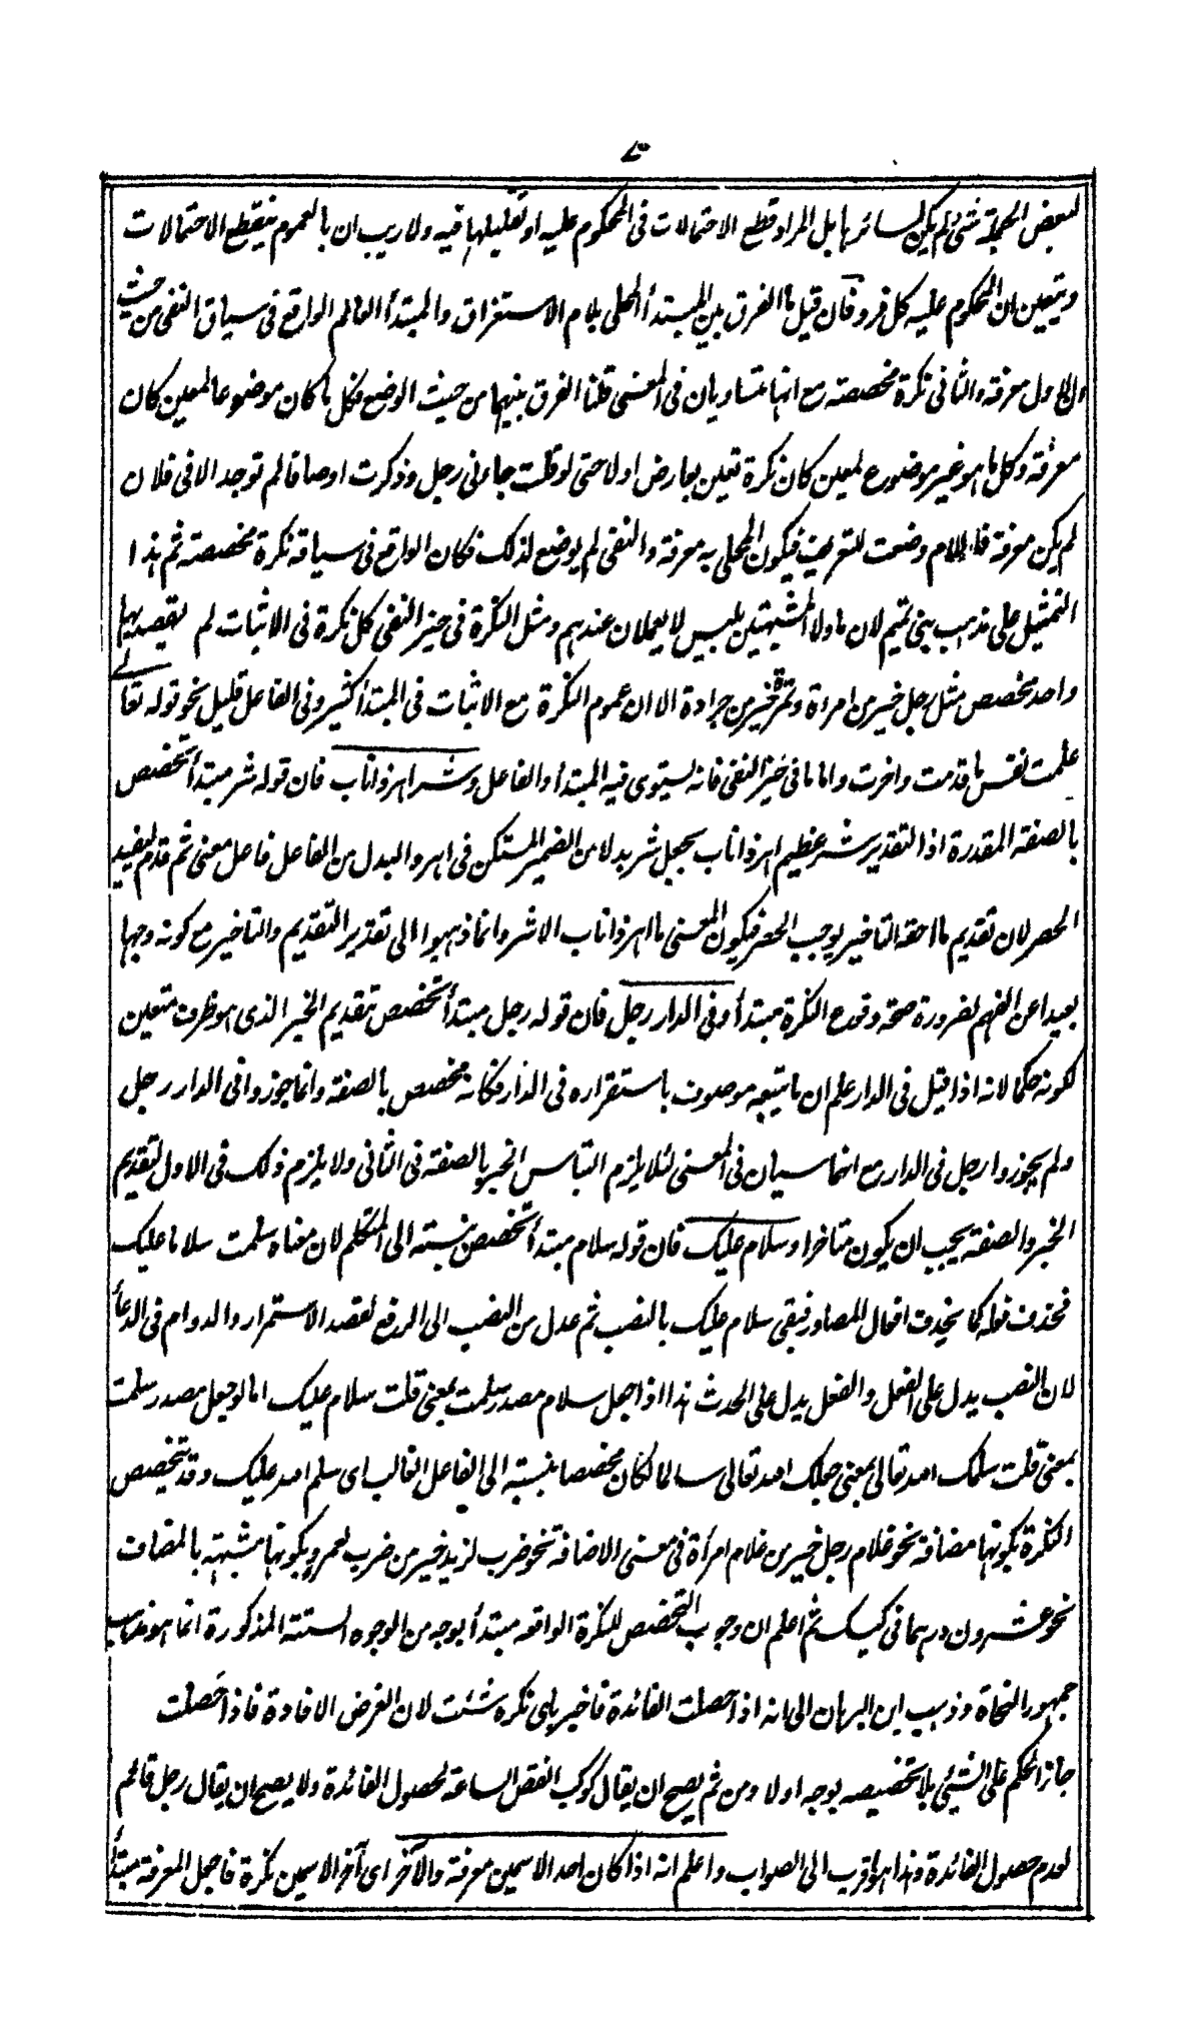 لبعض الجملة شئ لم يكن لسائرها بل المراد قطع الاحتمالات فى المحكوم عليه او تقليلها فيه ولا ريب ان بالعموم ينقطع الاحتمالات
ويتعين ان المحكوم عليه كل فرد فان قيل ما الفرق بين المبتدأ المحلى بلام الاستغراق والمبتدأ العام الواقع فى سياق النفى من حيث
ان الاول معرفة والثانى نكرة مخصصة مع انهما متساويان فى المعنى قلنا الفرق بينهما من حيث الوضع فكل ما كان موضوعا لمعين كان
معرفة وكل ما هو غير موضوع لمعين كان نكرة تعين بعارض اولا حتى لو قلت جاءنى رجل وذكرت اوصافا لم توجد الا فى فلان
لم يكن معرفة فاللام وضعت للتعريف فيكون المحلى به معرفة والنفى لم يوضع لذلك فكان الواقع فى سياقه نكرة مخصصة ثم هذا
التمثيل على مذهب بنى تميم لان ما ولا المشبهتين بليس لا يعملان عندهم ومثل النكرة فى حيز النفى كل نكرة فى الاثبات لم يقصد بها
واحد مخصص مثل رجل خير من امرءة وتمرة خير من جرادة الا ان عموم النكرة مع الاثبات فى المبتدأ كثير وفى الفاعل قليل نحو قوله تعالى
علمت نفس ما قدمت واخرت واما ما فى حيز النفى فانه يستوى فيه المبتدأ والفاعل وشر اهر ذا ناب فان قوله شر مبتدأ تخصص
بالصفة المقدرة اذ التقدير شر عظيم اهر ذا ناب بجعل شر بدلا من الضمير المستكن فى اهر والبدل من الفاعل فاعل معنى ثم قدم ليفيد
الحصر لان تقديم ما حقه التاخير يوجب الحصر فيكون المعنى ما اهر ذا ناب الا شر وانما ذهبوا الى تقدير التقديم والتاخير مع كونه وجها
بعيدا عن الفهم لضرورة صحة وقوع النكرة مبتدأ وفى الدار رجل فان قوله رجل مبتدأ تخصص بتقديم الخبر الذى هو ظرف متعين
لكونه حكما لانه اذا قيل فى الدار علم ان ما يتبعه موصوف باستقراره فى الدار فكانه مخصص بالصفة وانما جوزوا فى الدار رجل
ولم يجوزوا رجل فى الدار مع انهما سيان فى المعنى لئلا يلزم التباس الخبر بالصفة فى الثانى ولا يلزم ذلك فى الاول لتقديم
الخبر والصفة يجب ان يكون متاخرا وسلام عليك فان قوله سلام مبتدأ تخصص بنسبته الى المتكلم لان معناه سلمت سلاما عليك
فحذف فعله كما يحذف افعال المصادر فبقى سلام عليك بالنصب ثم عدل من النصب الى الرفع لقصد الاستمرار والدوام فى الدعأ
لان النصب يدل على الفعل والفعل يدل على الحدث هذا اذا جعل سلام مصدر سلمت بمعنى قلت سلام عليك اما لو جعل مصدر سلمت
بمعنى قلت سلمك الله تعالى بمعنى جعلك الله تعالى سالما لكان مخصصا بنسبته الى الفاعل الغائب اى سلم الله عليك وقد تخصص
النكرة بكونها مضافة نحو غلام رجل خير من غلام امرأة فى معنى الاضافة نحو ضرب لزيد خير من ضرب لعمرو وبكونها مشبهة بالمضاف
نحو عشرون درهما فى كيسك ثم اعلم ان وجوب التخصص للنكرة الواقعة مبتدأ بوجه من الوجوه الستة المذكورة انما هو مذهب
جمهور النحاة وذهب ابن البرهان الى انه اذا حصلت الفائدة فاخبر باى نكرة شئت لان الغرض الافادة فاذا حصلت
جاز الحكم على الشيئ بلا تخصيصه بوجه اولا ومن ثم يصح ان يقال كوكب انقض الساعة لحصول الفائدة ولا يصح ان يقال رجل قائم
لعدم حصول الفائدة وهذا هو اقرب الى الصواب واعلم انه اذا كان احد الاسمين معرفة والآخر اى آخر الاسمين نكرة فاجعل المعرفة مبتدأ